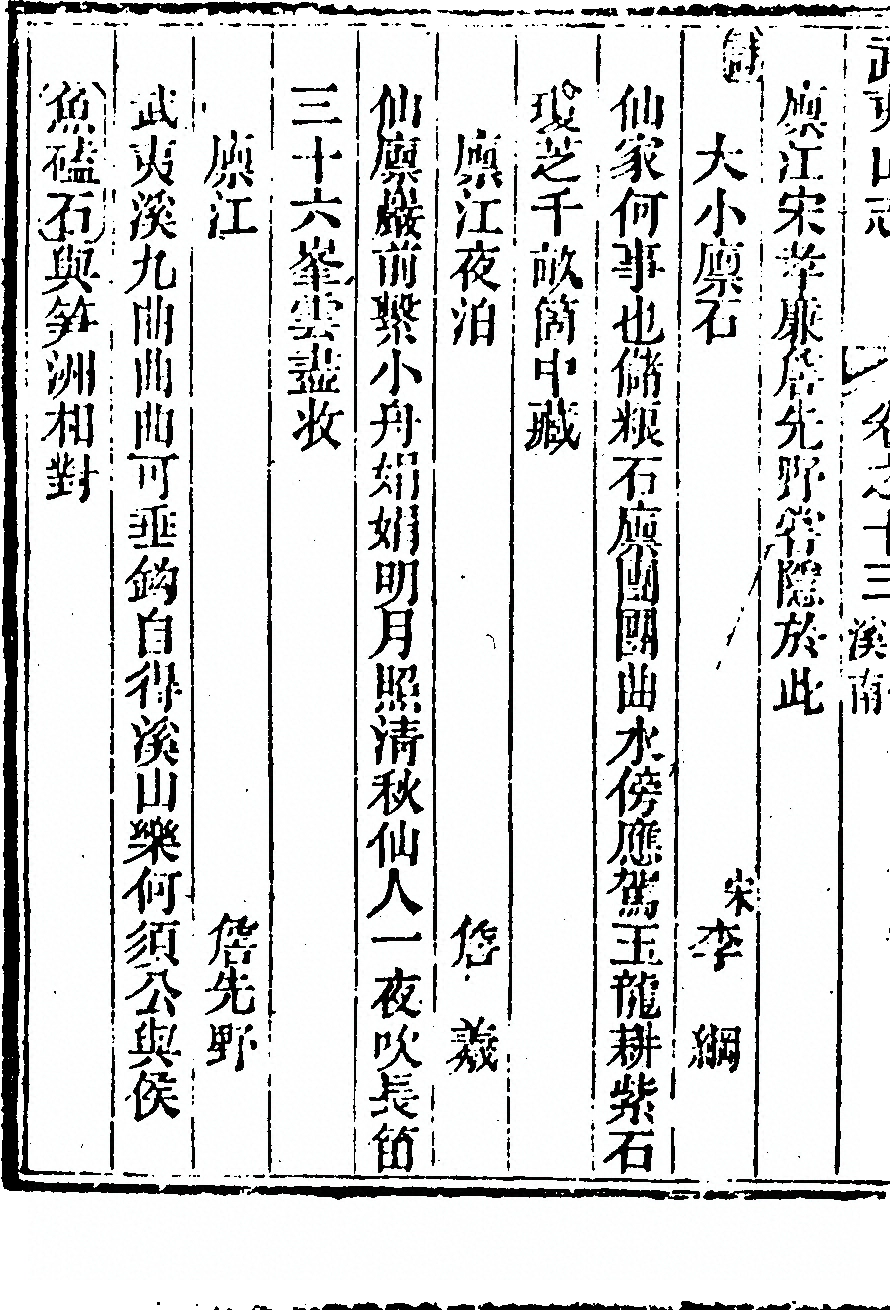 武夷山志 卷之十三 溪南
廪江宋孝廉詹先野嘗隱於此
詩
大小廪石 宋李綱
仙家何事也儲粮石廪團團曲水傍應駕玉龍耕紫石
瓊芝千畝箇中藏
廪江夜泊 詹羲
仙廪巖前繫小舟娟娟明月照清秋仙人一夜吹長笛
三十六峯雲盡收
廪江 詹先野
武夷溪九曲曲曲可垂鈎自得溪山樂何須公與侯
魚磕石與笋洲相對